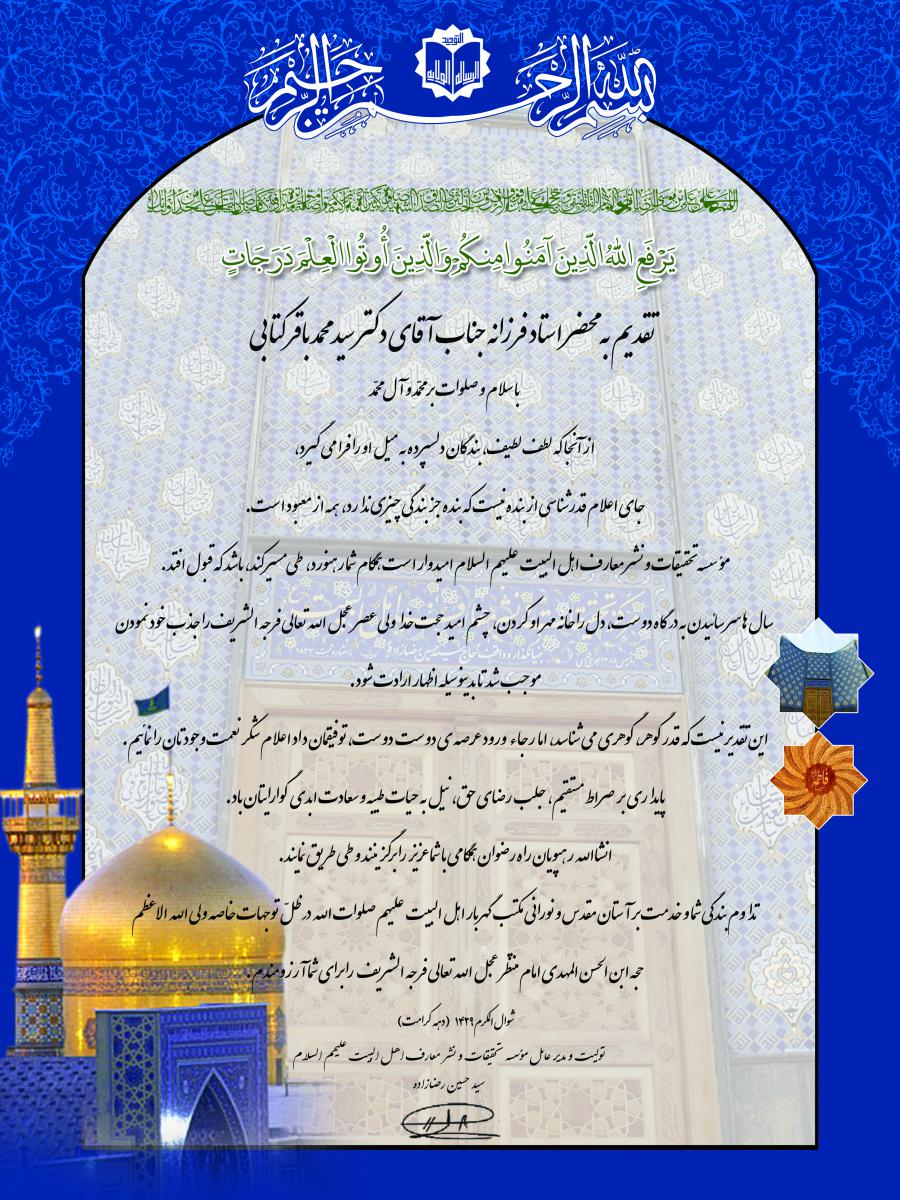 بسم الله الرحمن الرحیم
التوحید
الرسالة الولایة
یَرْفَعِ اللهُ الَّذِینَ آمَنُوا مِنکُمْ وَالَّذِینَ أُوتُوا الْعِلْمَ دَرَجَاتٍ
تقدیم به محضر استاد فرزانه جناب آقای دکتر سید محمد باقر کتابی
با سلام و صلوات بر محمّد و آل محمّد
از آنجا که لطف لطیف، بندگان دلسپرده به میل او را فرا می گیرد،
جای اعلام قدرشناسی از بنده نیست که بنده جز بندگی چیزی ندارد، همه از معبود است.
مؤسسه تحقیقات و نشر معارف اهل البیت علیهم السلام امیدوار است بگام شمار هنورد، طی مسیر کند، باشد که قبول افتد.
سال ها سر ساییدن به درگاه دوست، دل را خانه مهر او کردن، چشم امید حجت خدا ولی عصر عجل الله تعالی فرجه الشریف را جذب خود نمودن
موجب شد تا بدینوسیله اظهار ارادت شود.
این تقدیر نیست که قدر گوهر، گوهری می شناسد، اما رجاء ورود عرصه ی دوست دوست، توفیقمان داد اعلام شکر نعمت وجودتان را نمائیم.
پایداری بر صراط مستقیم، جلب رضای حق، نیل به حیات طیبه و سعادت ابدی گوارایتان باد.
انشاالله رهپویان راه رضوان همگامی با شما عزیز را برگزینند و طی طریق نمایند.
تداوم بندگی شما و خدمت بر آستان مقدس و نورانی مکتب گهربار اهل البیت علیهم صلوات الله در ظلّ توجهات خاصه ولی الله الاعظم
حجه ابن الحسن المهدی امام منتظر عجل الله تعالی فرجه الشریف را برای شما آرزومندم.
شوال المکرم ۱۴۲۹ (دهه کرامت)
تولیت و مدیر عامل مؤسسه تحقیقات و نشر معارف اهل البیت علیهم السلام
سید حسین رضازاده
فاطمة